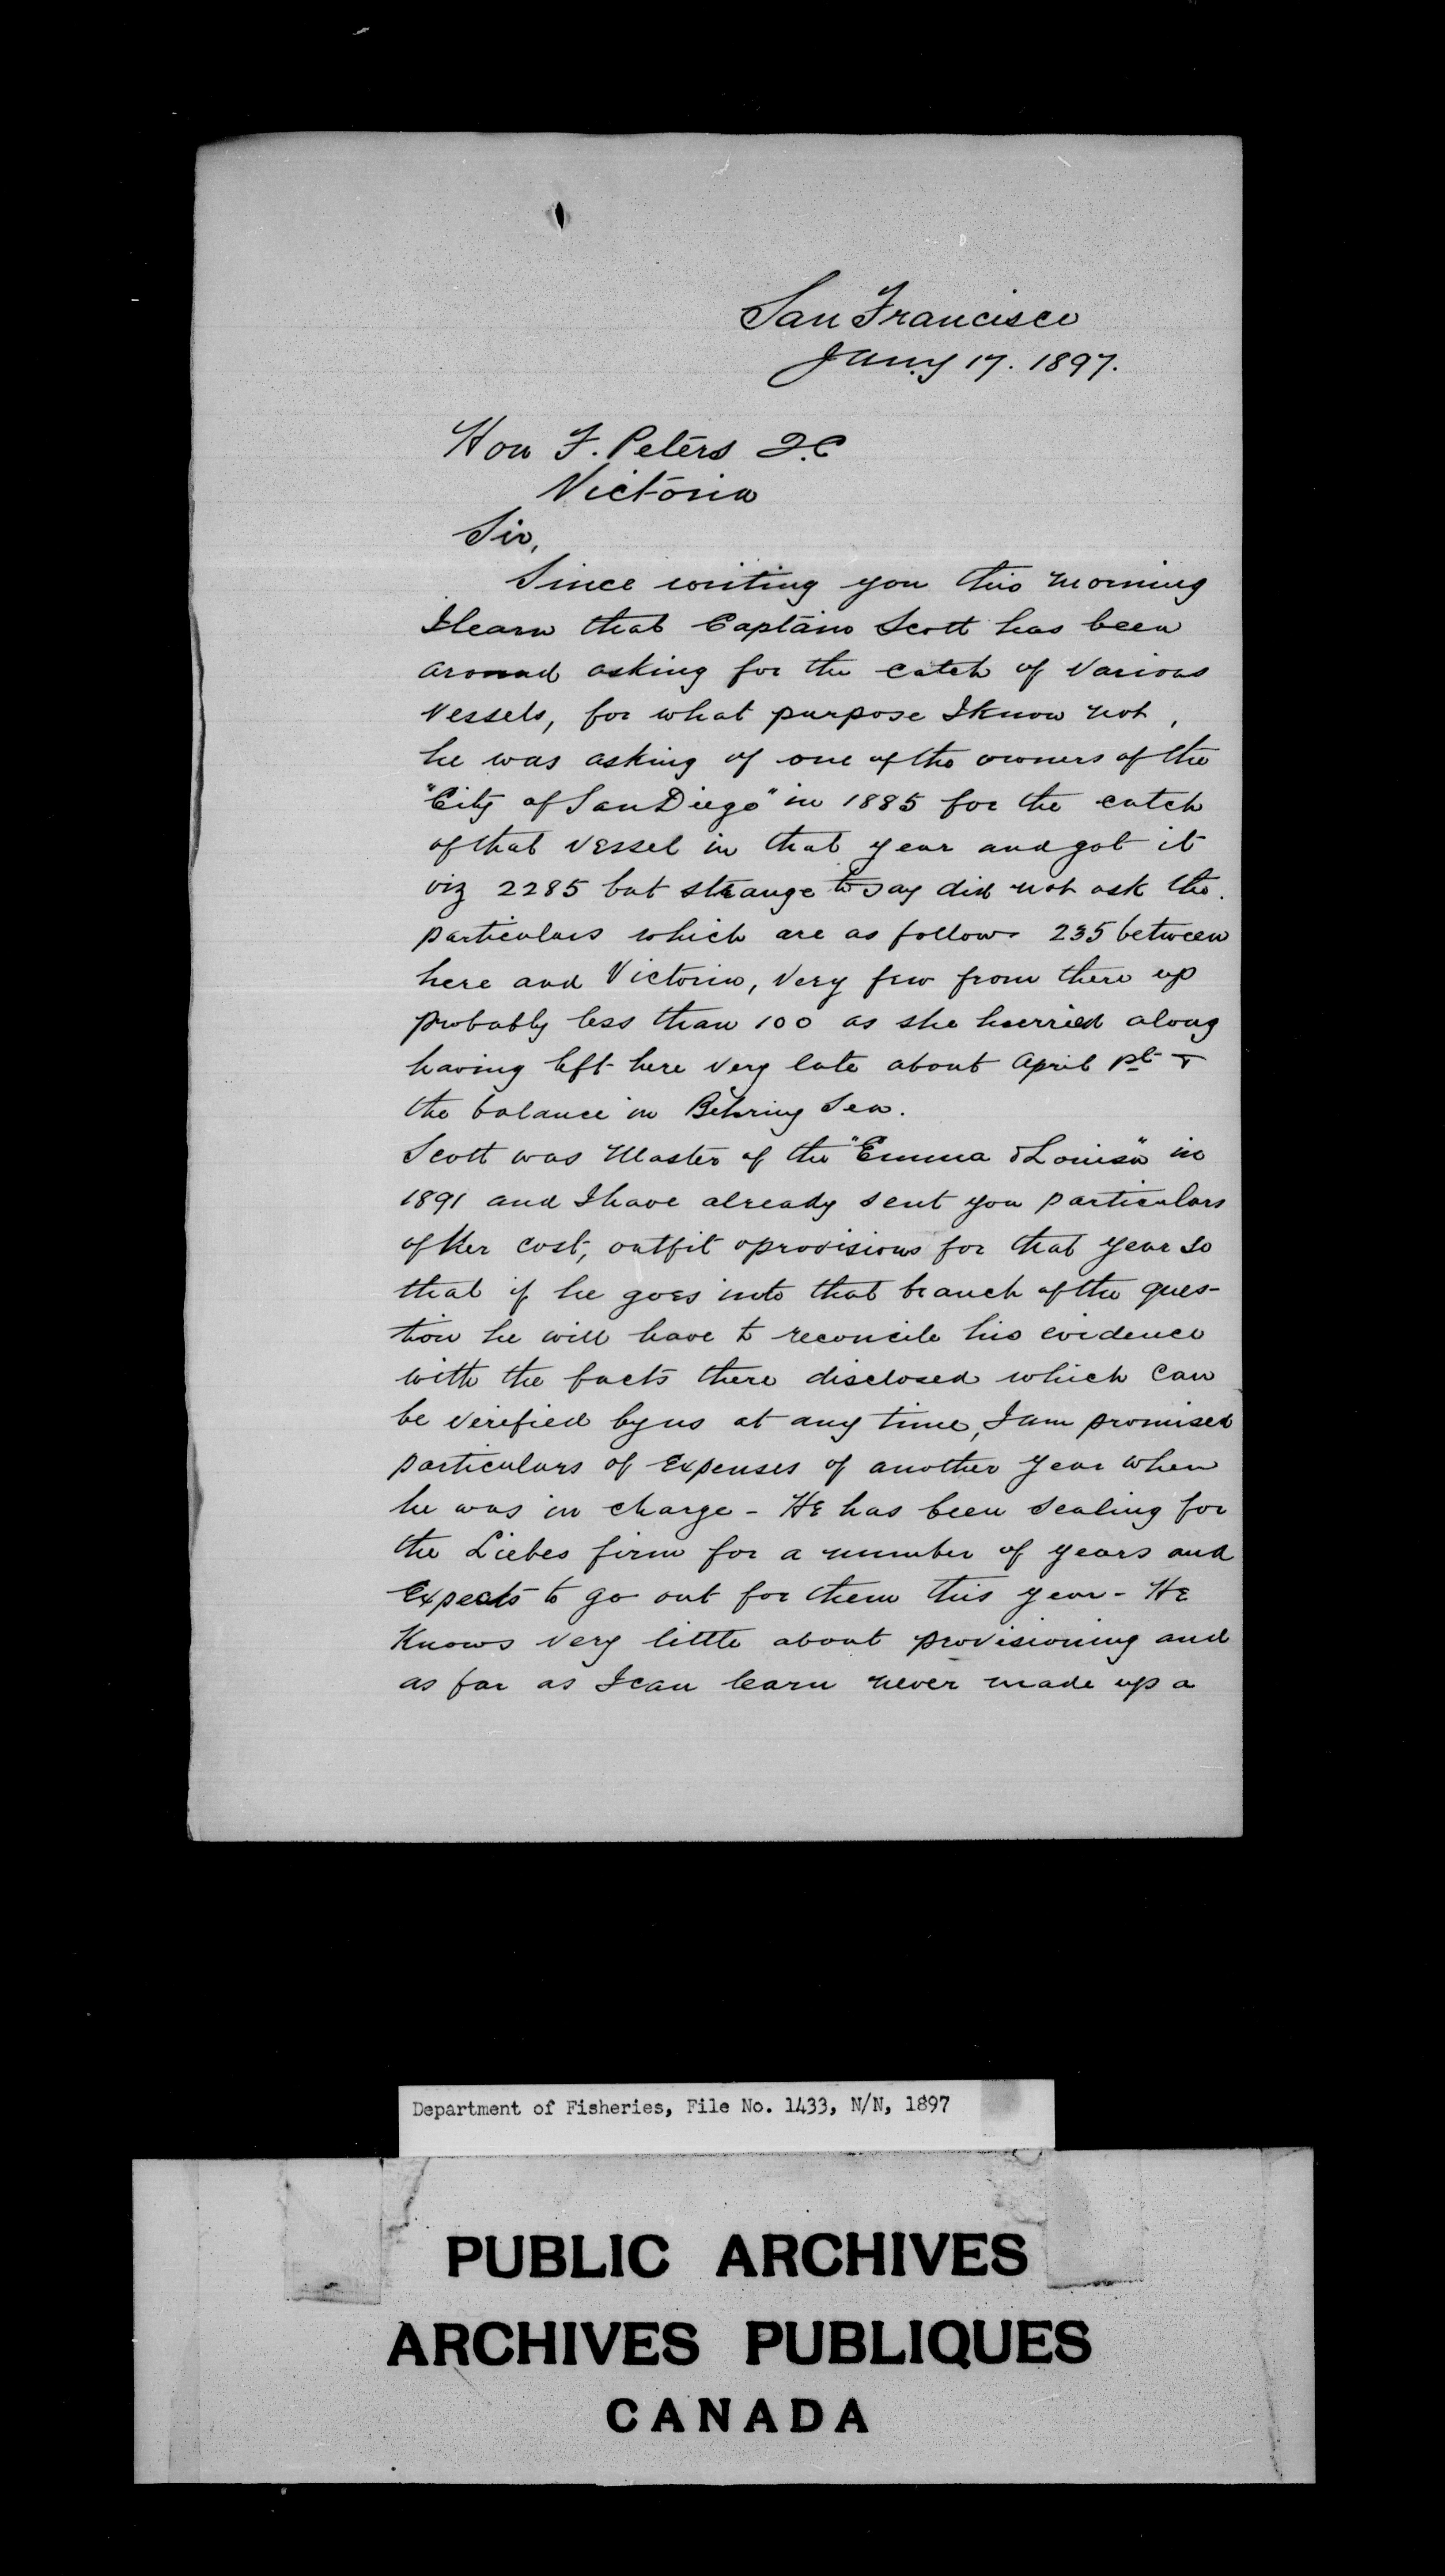 San Francisco
Jany 17. 1897.
Hon F. Peters Q.C
Victoria
Sir,
Since writing you this morning
I learn that Captain Scott has been
around asking for the catch of various
vessels, for what purpose I know not,
he was asking of one of the owners of the
"City of San Diego" in 1885 for the catch
of that vessel in that year and got it
viz 2285 but strange to say did not ask the
particulars which are as follows 235 between
here and Victoria, very few from there up
probably less than 100 as she hurried along
having left here very late about April 1st &
the balance in Behring Sea.
Scott was Master of the "Emma & Louisa" in
1891 and I have already sent you particulars
of her cost, outfit & provisions for that year so
that if he goes into that branch of the ques-
tion he will have to reconcile his evidence
with the facts there disclosed which can
be verified by us at any time, I am promised
particulars of expenses of another year when
he was in charge - He has been sealing for
the Liebes firm for a number of years and
expects to go out for them this year - He
knows very little about provisioning and
as far as I can learn never made up a
Department of Fisheries, File No. 1433, N/N, 1897
PUBLIC ARCHIVES
ARCHIVES PUBLIQUES
CANADA